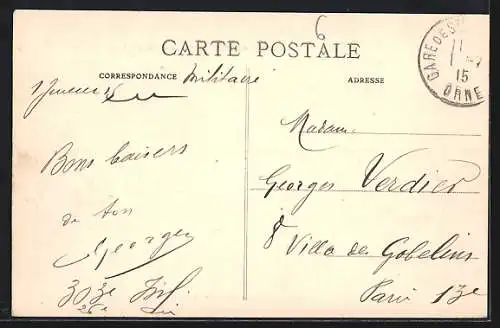 6
CARTE POSTALE
CORRESPONDANCE Militaire
ADRESSE
GARE DE S
11
-7
15
ORNE
Bons baisers
de ton
Georges
303e Inf.
26e
Madame
Georges Verdier
8 Villa des Gobelins
Paris 13e